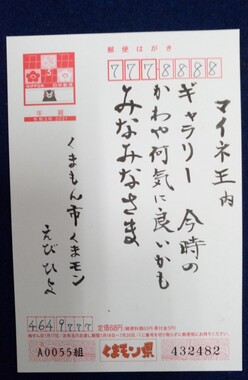 郵便はがき
7778888
マイネ王内
ギャラリー 今時の
かわや何気に良いかも
みなみなさま
くまもん市くまモン
えびひよ
年賀
4649777
A0055組
くまモン県
432482